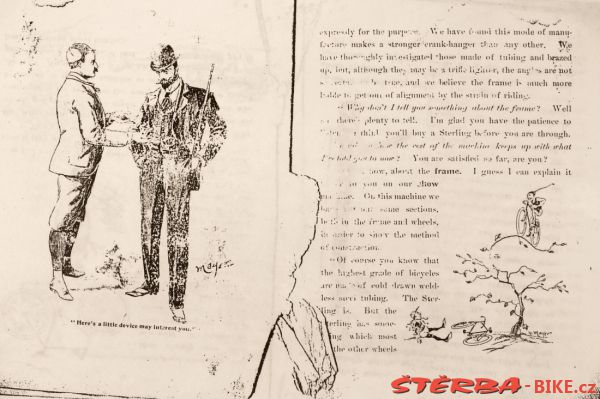 "Here's a little device may interest you."
expressly for the purpose. We have found this mode of manu-
facture makes a stronger crank-hanger than any other. We
have thoroughly investigated those made of tubing and brazed
up, but, although they may be a trifle lighter, the angles are not
so true, and we believe the frame is much more
liable to get out of alignment by the strain of riding.
"Why don't I tell you something about the frame? Well
there's plenty to tell. I'm glad you have the patience to
you'll buy a Sterling before you are through.
the rest of the machine keeps up with what
I've told you to now? You are satisfied so far, are you?
now, about the frame. I guess I can explain it
to you on our show
machine. On this machine we
have cut out some sections,
both in the frame and wheels,
in order to show the method
of construction.
"Of course you know that
the highest grade of bicycles
are made of cold drawn weld-
less steel tubing. The Ster-
ling is. But the
Sterling has some-
thing which most
of the other wheels
ŠTĚRBA-BIKE.cz